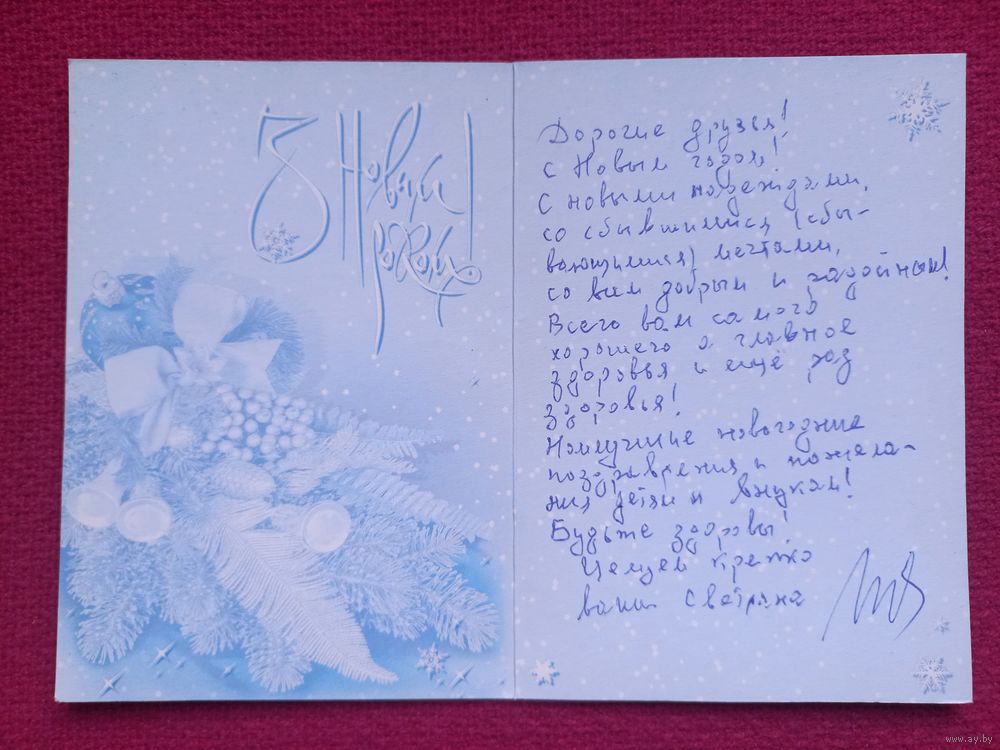 З Новым
годам!
Дорогие друзья!
с Новым годом!
С новыми надеждами,
со сбывшимися (сбы-
вающимися) мечтами,
со всем добрым и радостным!
Всего вам самого
хорошего а главное
здоровья и ещё раз
здоровья!
Наилучшие новогодние
поздравления и пожела-
ния детям и внукам!
Будьте здоровы!
Целуем крепко
ваши
www.ay.by